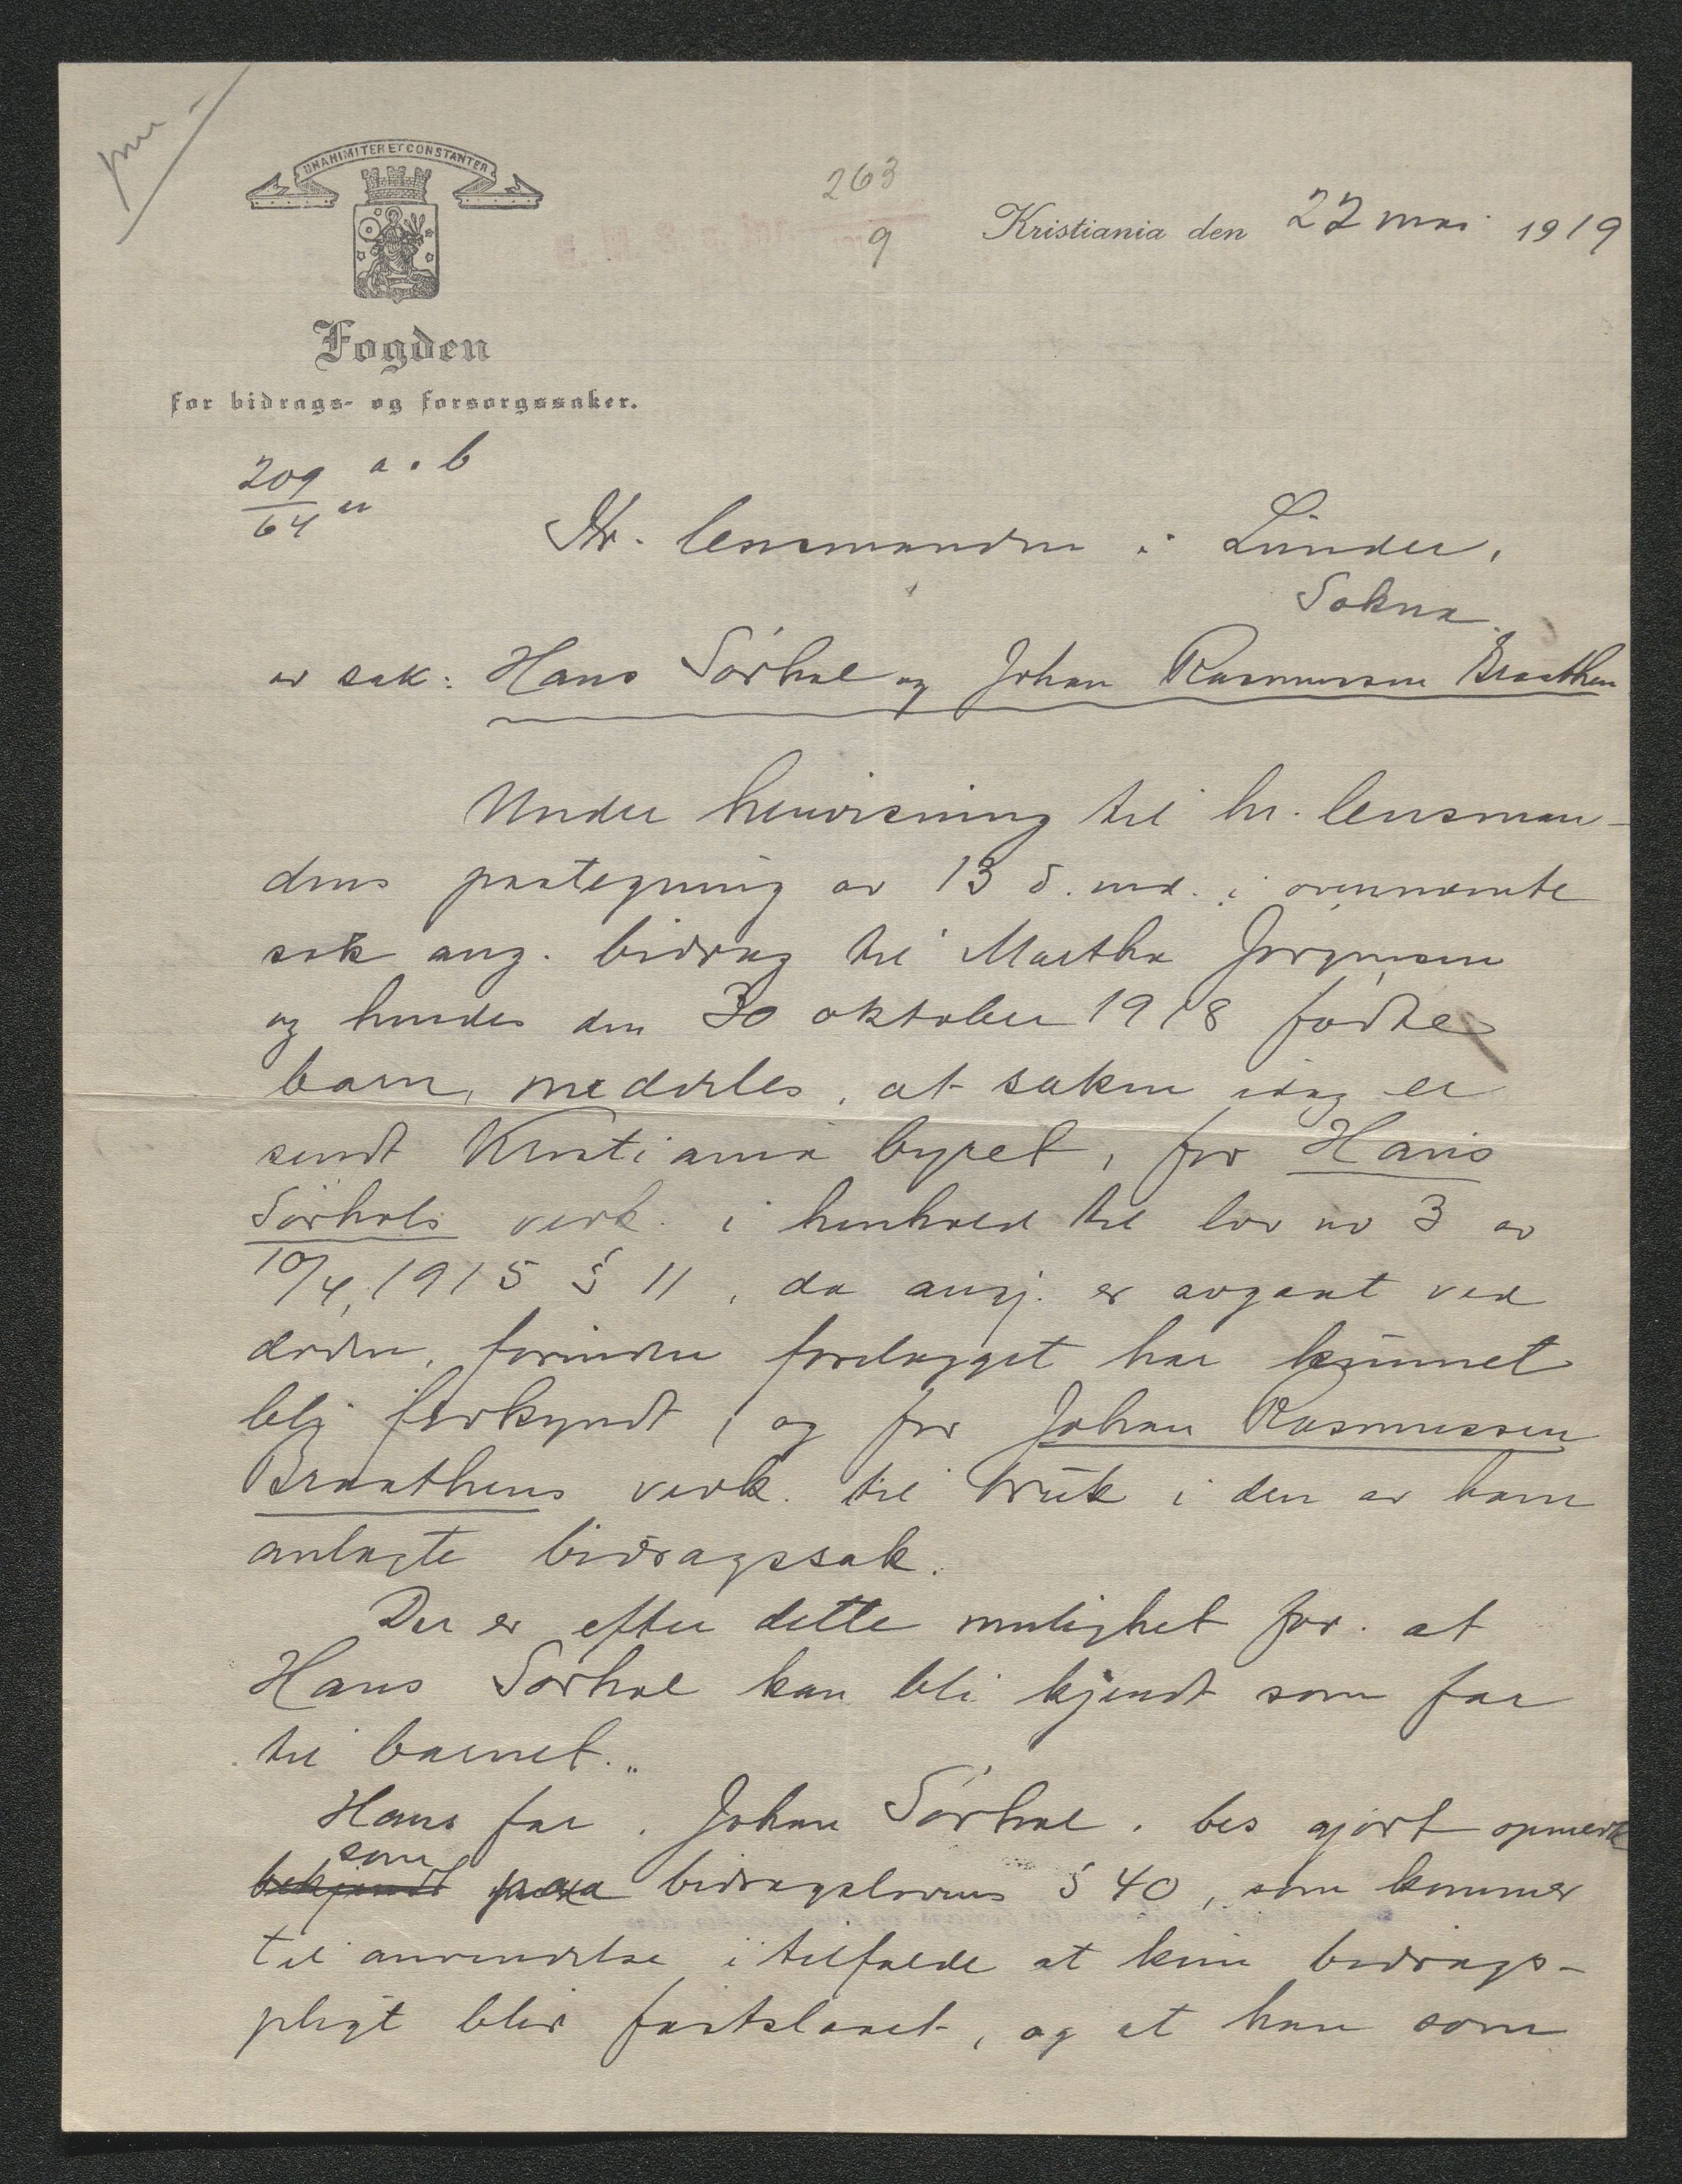 UNANIMITER ET CONSTANTER
263
9
Kristiania den 22 mai 1919
Fogden
for bidrags- og forsorgssaker.
209 a. b
64
Hr. lensmanden i Lunder,
Sokna.
av sak: Hans Sørhol og Johan Rasmussen Braathen
Under henvisning til hr. lensman-
dens paategning av 13 d. md. i ovennævnte
sak ang. bidrag til Martha Jørgensen
og hendes den 30 oktober 1918 fødte
barn, meddeles, at saken idag er
sendt Kristiania byret, for Hans
Sørhols verk. i henhold til lov nr 3 av
10/4, 1915 § 11, da angj. er avgaat ved
døden, forinden forelægget har kunnet
bli forkyndt, og for Johan Rasmussen
Braathens verk. til bruk i den av ham
anlagte bidragssak.
Der er efter dette mulighet for at
Hans Sørhol kan bli kjendt som far
til barnet.
Hans far, Johan Sørhol, bes gjort opmerk
som
bekjendt paa bidragslovens § 40, som kommer
til anvendelse i tilfælde at hein bidrags-
pligt blir fastslaaet, og at han som